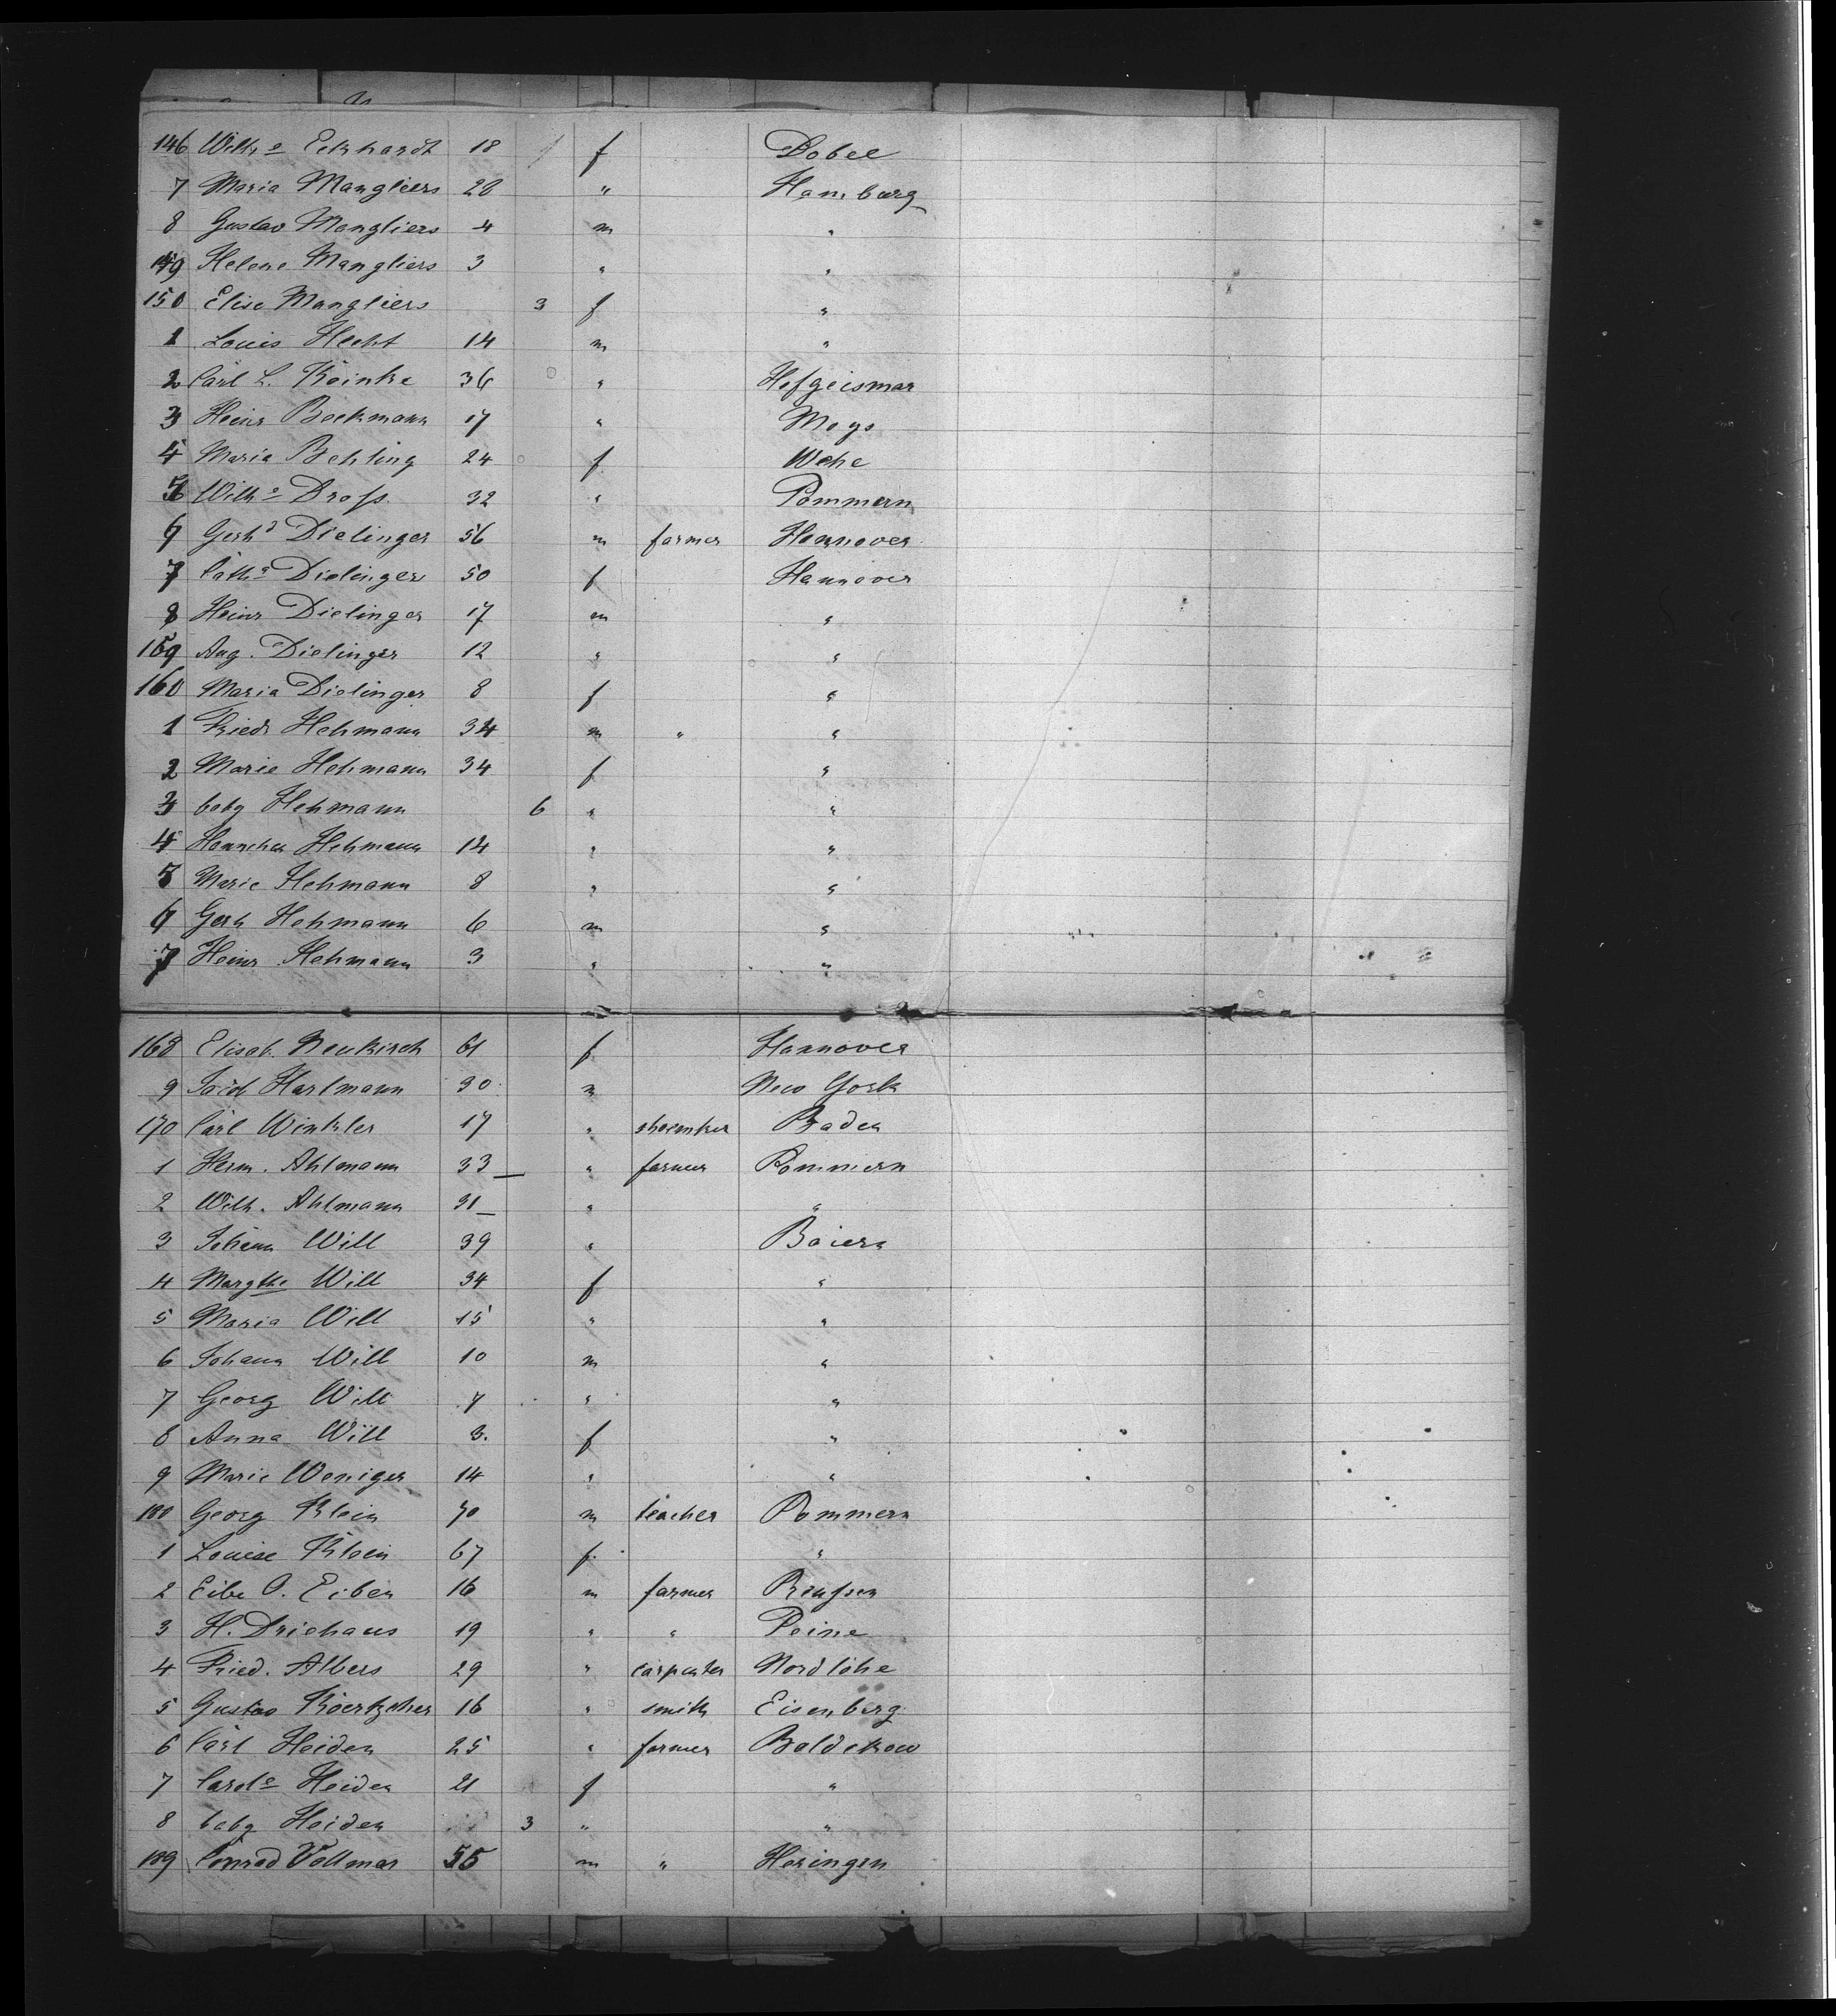 146 Wilhe Eckhardt 18 f Dobel
7 Maria Mangliers 28 " Hamburg
8 Gustav Mangliers 4 m "
149 Helene Mangliers 3 " "
150 Elise Mangliers 3 f "
1 Louis Hecht 14 m "
2 Carl L. Reinke 36 " Hofgeismar
3 Heinr Beckmann 17 "
4 Maria Behling 24 f Wehe
5 Wilhe Dross 32 " Pommern
6 Gerhd Dielinger 56 m farmer Hannover
7 Catha Dielinger 50 f Hannover
8 Heinr Dielinger 17 m "
159 Aug. Dielinger 12 " "
160 Maria Dielinger 8 f "
1 Friedr Hehmann 34 m " "
2 Marie Hehmann 34 f "
3 baby Hehmann 6 " "
4 Hannchen Hehmann 14 " "
5 Marie Hehmann 8 " "
6 Gerh Hehmann 6 m "
7 Heinr Hehmann 3 " "
168 Elisab. Neukirch 61 f Hannover
9 Hartmann 30 m New York
170 Carl Winkler 17 " shoemker Baden
1 Herm. Ahlmann 33 " farmer Pommern
2 Wilh. Ahlmann 31 " "
3 Johann Will 39 " Baiern
4 Margthe Will 34 f "
5 Maria Will 15 " "
6 Johann Will 10 m "
7 Georg Will 7 " "
8 Anna Will 3. f "
9 Marie Weniger 14 " "
180 Georg Klein 70 m teacher Pommern
1 Louise Klein 67 f. "
2 Eibe O. Eiben 16 m farmer Preussen
3 H. Driehaus 19 " " Peine
4 Fried. Albers 29 " carpenter Nordlohe
5 Gustav 16 " smith Eisenberg
6 Carl Heiden 25 " farmer Boldekow
7 Carole Heiden 21 f "
8 baby Heiden 3 " "
189 Conrad Vollmar 55 m " Heringen